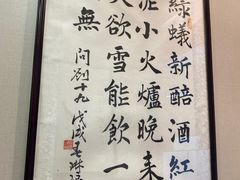 綠蟻新醅酒紅
泥小火爐晚来
天欲雪能飲一
無 問劉十九 戊戌